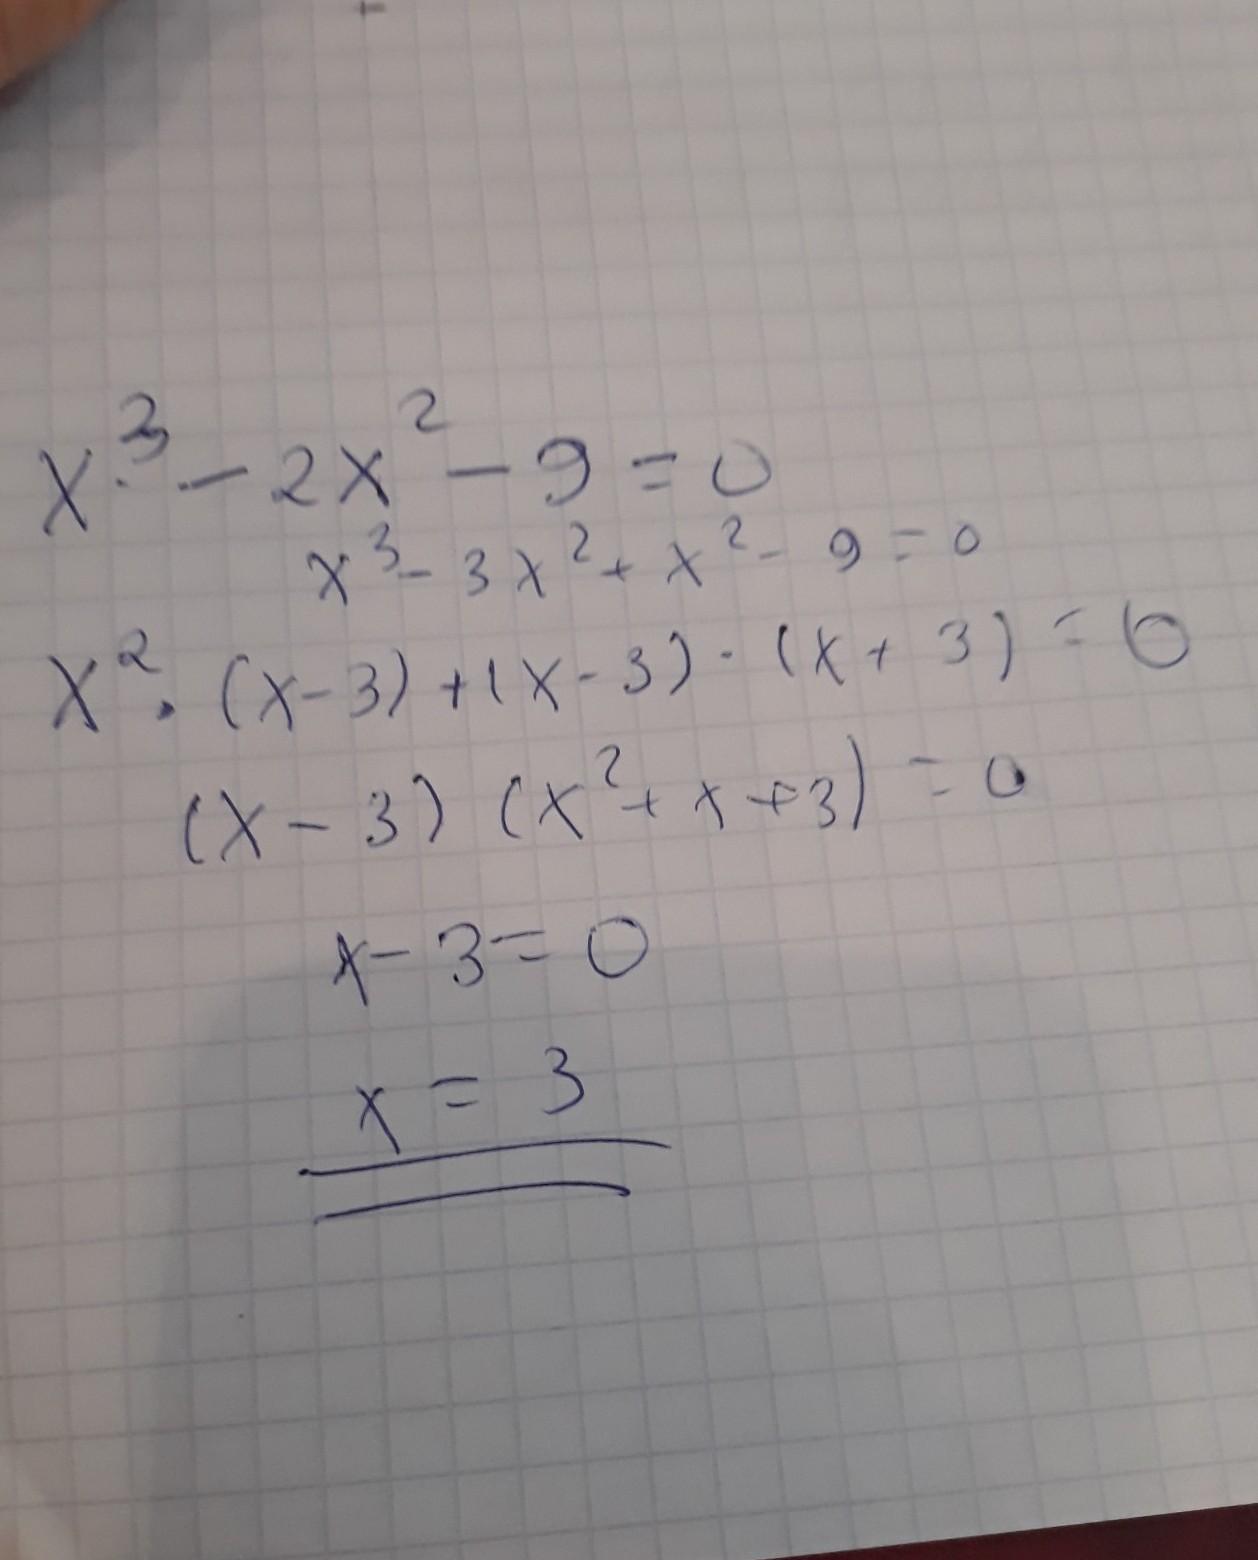 x³ - 2x² - 9 = 0
x³ - 3x² + x² - 9 = 0
x² · (x-3) + (x-3) · (x+3) = 0
(x-3) (x² + x + 3) = 0
x - 3 = 0
x = 3